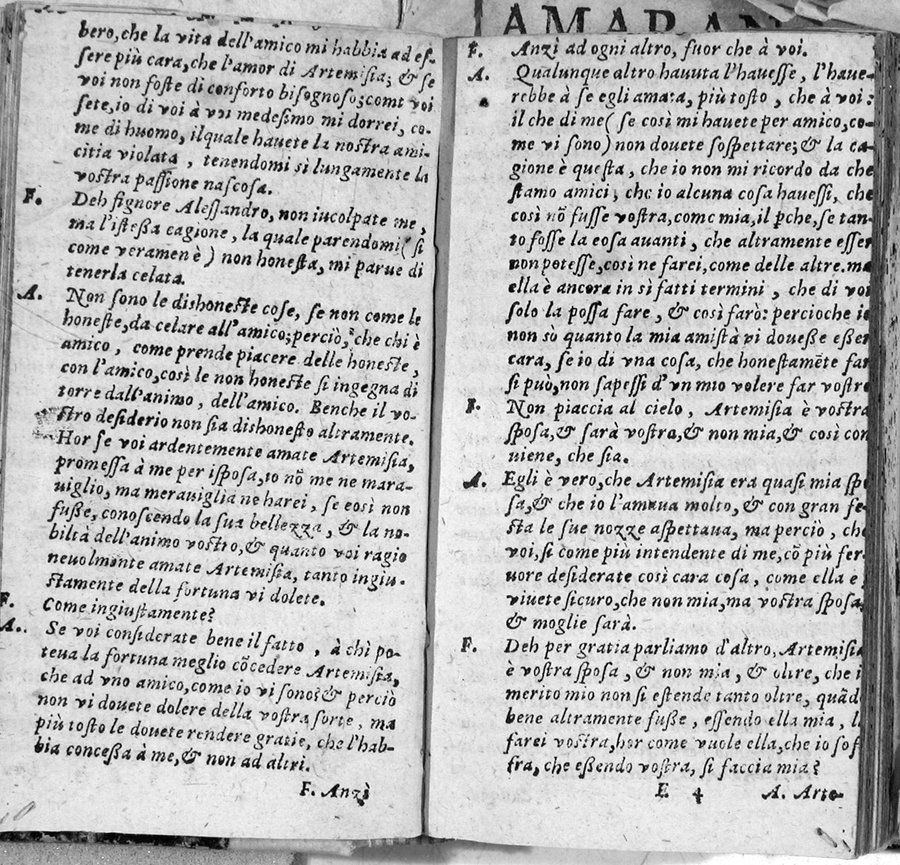 AMARAN
bero, che la vita dell'amico mi habbia ad es-
sere più cara, che l'amor di Artemisia; & se
voi non foste di conforto bisognoso; comt voi
sete, io di voi à voi medesimo mi dorrei, co-
me di huomo, ilquale hauete la nostra ami-
citia violata, tenendomi si lungamente la
vostra passione nascosa.
F. Deh signore Alessandro, non iucolpate me,
ma l'istessa cagione, la quale parendomi (si
come veramen è) non honesta, mi parue di
tenerla celata.
A. Non sono le dishoneste cose, se non come le
honeste, da celare all'amico; perciò, che chi è
amico, come prende piacere delle honeste,
con l'amico, così le non honeste si ingegna di
torre dall'animo, dell'amico. Benche il vo-
stro desiderio non sia dishonesto altramente.
Hor se voi ardentemente amate Artemisia,
promessa à me per isposa, io nõ me ne mara-
uiglio, ma merauiglia ne harei, se eosì non
fusse, conoscendo la sua bellezza, & la no-
biltà dell'animo vostro, & quanto voi ragio
neuolmente amate Artemisia, tanto ingiu-
stamente della fortuna vi dolete.
F. Come ingiustamente?
A. Se voi considerate bene il fatto, à chi po-
teua la fortuna meglio cõcedere Artemisia,
che ad vno amico, come io vi sono; & perciò
non vi douete dolere della vostra sorte, ma
più tosto le douete rendere gratie, che l'hab-
bia concessa à me, & non ad altri.
F. Anzì
F. Anzì ad ogni altro, fuor che à voi.
A. Qualunque altro hauuta l'hauesse, l'haue-
rebbe à se egli amata, più tosto, che à voi:
il che di me (se così mi hauete per amico, co-
me vi sono) non douete sospettare; & la ca-
gione è questa, che io non mi ricordo da che
stamo amici, che io alcuna cosa hauessi, che
così nõ fusse vostra, come mia, il pche, se tan-
to fosse la eosa auanti, che altramente esser
non potesse, così ne farei, come delle altre. ma
ella è ancora in sì fatti termini, che di voi
solo la possa fare, & così farò: percioche io
non sò quanto la mia amistà vi douesse esser
cara, se io di vna cosa, che honestamẽte far
si può, non sapessi d'vn mio volere far vostro
F. Non piaccia al cielo, Artemisia è vostra
sposa, & sarà vostra, & non mia, & così con
uiene, che sia.
A. Egli è vero, che Artemisia era quasi mia spo
sa, & che io l'amaua molto, & con gran fe-
sta le sue nozze aspettaua, ma perciò, che
voi, si come più intendente di me, cõ più fer-
uore desiderate così cara cosa, come ella è
viuete sicuro, che non mia, ma vostra sposa,
& moglie sarà.
F. Deh per gratia parliamo d'altro, Artemisia
è vostra sposa, & non mia, & oltre, che i
merito mio non si estende tanto oltre, quãd
bene altramente fusse, essendo ella mia, l
farei vostra, hor come vuole ella, che io sof
fra, che essendo vostra, si faccia mia?
E 4 A. Arte-